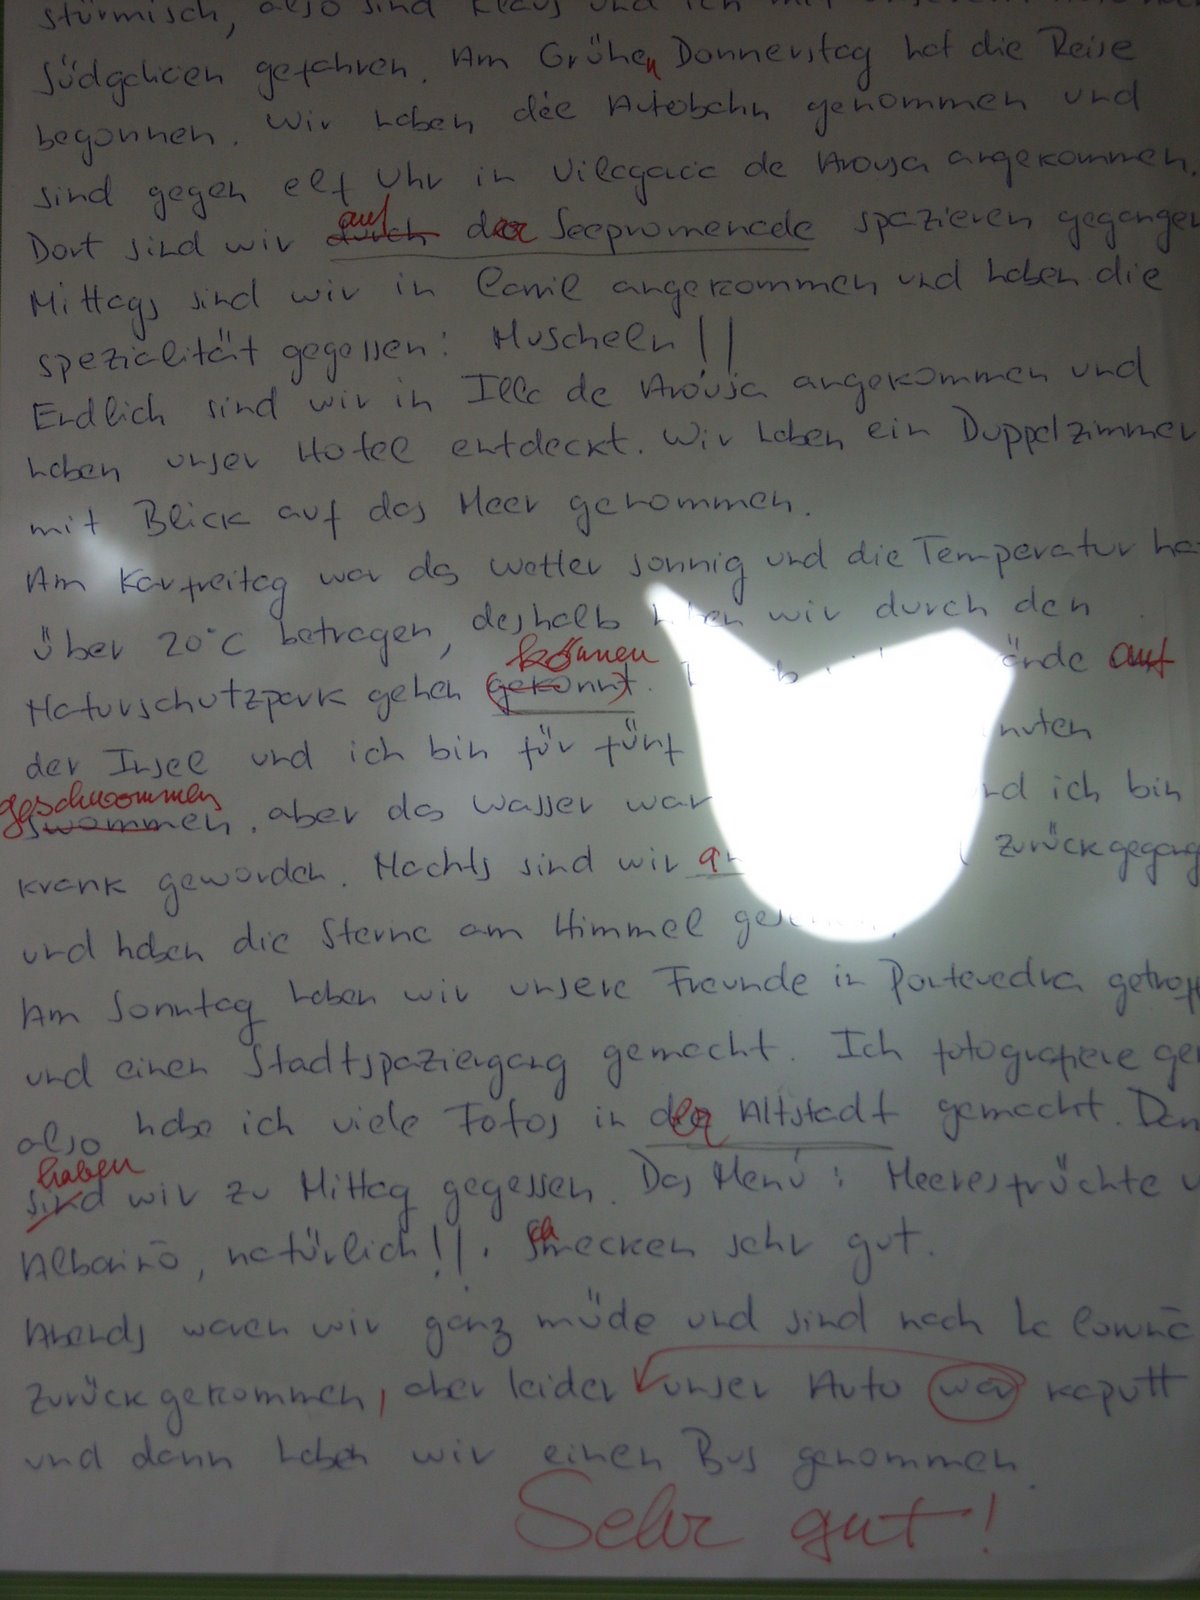 stürmisch, also sind Klaus und ich mit unserem
Südgalicien gefahren. Am Grühen Donnerstag hat die Reise
begonnen. Wir haben die Autobahn genommen und
sind gegen elf Uhr in Vilagacia de Arousa angekommen.
auf
Dort sind wir durch der Seepromenade spazieren gegangen
Mittags sind wir in Camil angekommen und haben die
spezialität gegessen: Muscheln!!
Endlich sind wir in Illa de Arousa angekommen und
haben unser Hotel entdeckt. Wir haben ein Duppelzimmer
mit Blick auf das Meer genommen.
Am Karfreitag war das wetter sonnig und die Temperatur ha
über 20°C betragen, deshalb haben wir durch den
können
Naturschutzpark gehen (gekonnt). ände auf
der Insel und ich bin für fünf nuten
geschwommen
swommen, aber das wasser war nd ich bin
krank geworden. Nachts sind wir an zurückgegang
und haben die Sterne am Himmel
Am Sonntag haben wir unsere Freunde in Pontevedra getroff
und einen Stadtspaziergang gemacht. Ich fotografiere ger
also habe ich viele Fotos in der Altstadt gemacht. Dan
haben
sind wir zu Mittag gegessen. Das Menú: Meeresfrüchte u
Albariño, natürlich!!. Schmecken sehr gut.
Abends waren wir ganz müde und sind nach La Coruñ
zurückgekommen, aber leider unser Auto war kaputt
und dann haben wir einen Bus genommen.
Sehr gut!